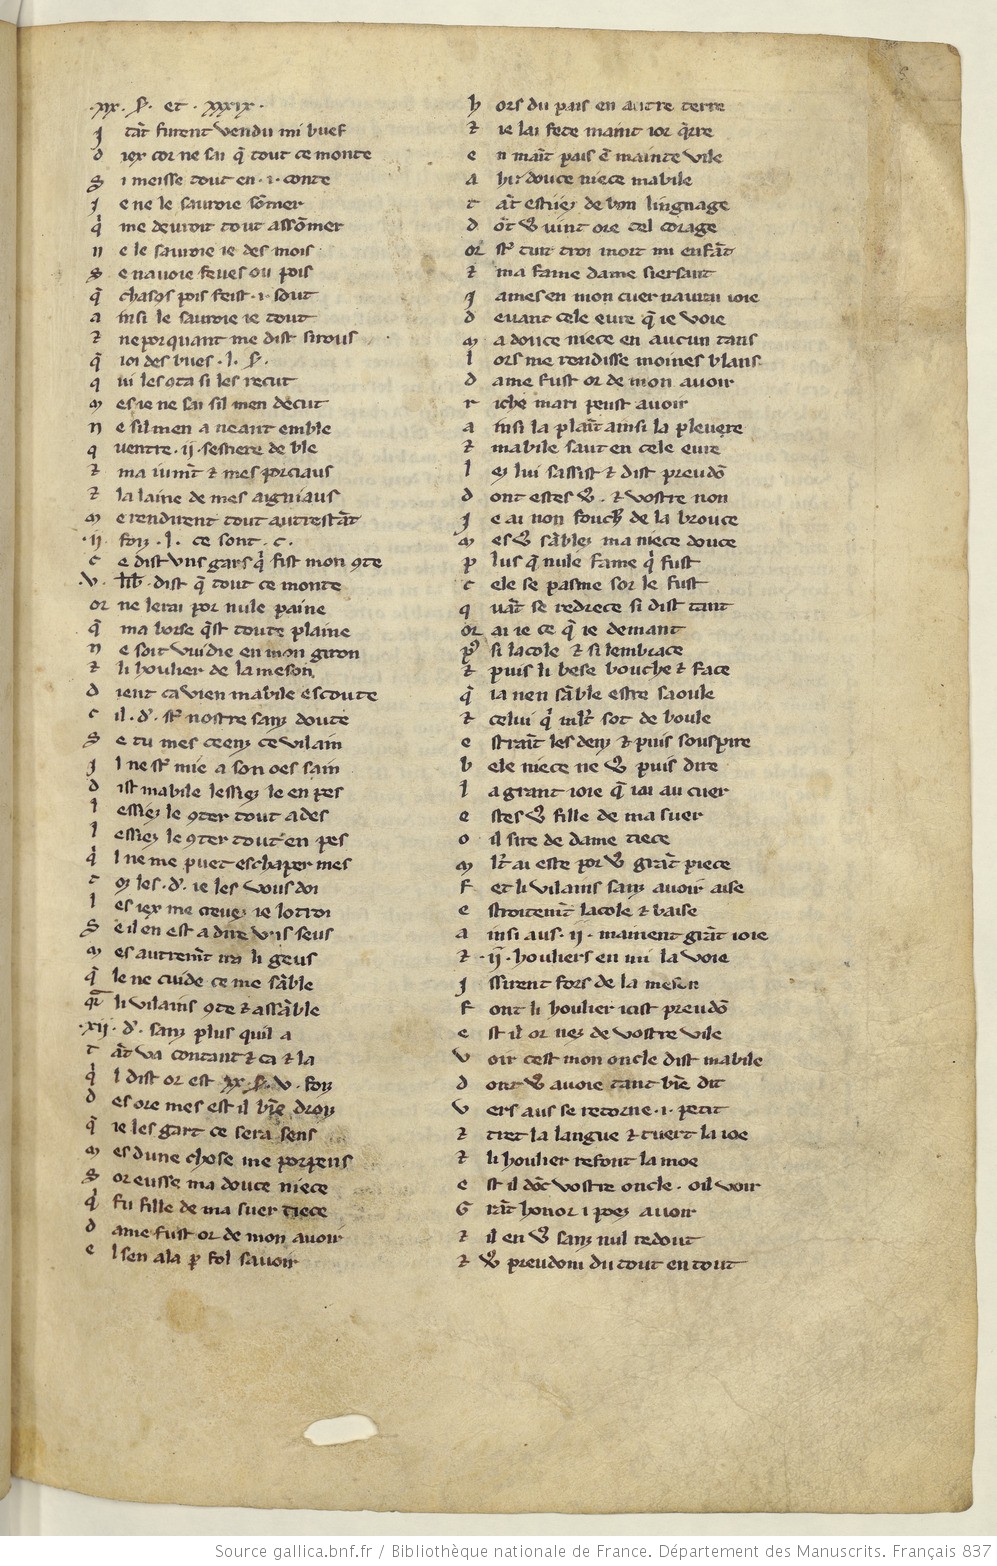 .xix. s. et .xxxix.
J tāt furent vendu mi buef
d iex cor ne sai q̄ tout ce monte
S i meisse tout en .i. conte
J e ne le sauroie sōmer
q̇ me deuroit tout assōmer
n e le sauroie ie des mois
S e nauoie feues ou pois
q̄ chasqs pois feist .i. sout
a insi le sauroie ie tout
⁊ ne porquant me dist sirous
q̄ ioi des bues .l. s.
q ui les 9ta si les recut
m es ie ne sai sil men decut
n e sil men a neant emble
q uentre .ii. sestiere de ble
⁊ ma iumt̄ ⁊ mes porciaus
⁊ la laine de mes aigniaus
m e rendirent tout autrestāt
.ii. foiz .l. ce sont .c.
c e dist vns gars q̇ fist mon 9te
.v. lib̄. dist q̄ tout ce monte
or ne lerai por nule paine
q̄ ma borse q̄st toute plaine
n e soit vuidie en mon giron
⁊ li houlier de la meson
d ient ca vien mabile escoute
c il .d'. st̄ nostre sanz doute
S e tu mes ceenz ce vilain
J l ne st̄ mie a son oes sain
d ist mabile lessiez le en pes
l essiez le 9ter tout ades
l essiez le 9ter tout en pes
q̇ l ne me puet eschaper mes
t oz les .d'. ie les vous doi
l es iex me creuez ie lotroi
S e il en est a dire vns seus
m es autremt̄ ira li geus
q̄ le ne cuide ce me sāble
qr̄ li vilains 9te ⁊ assāble
.xii. d'. sanz plus quil a
t āt va contant ⁊ ca ⁊ la
q̇ l dist or est .xx. s. .v. foiz
d es ore mes est il biē droiz
q̄ ie les gart ce sera sens
m es dune chose me porpens
S or eusse ma douce niece
q̇ fu fille de ma suer tiece
d ame fust or de mon auoir
e l sen ala p̱ fol sauoir
h ors du pais en autre terre
⁊ ie lai fete maint ior q̄rre
e n maīt pais ē mainte vile
a hi douce niece mabile
t āt estiiez de bon lingnage
d ōt v9 uint ore cel corage
or st̄ tuit troi mort mi enfāt
⁊ ma fame dame siersant
J ames en mon cuer naurai ioie
d euant cele eure q̄ ie voie
m a douce niece en aucun tans
l ors me rendisse moines blans
d ame fust or de mon auoir
r iche mari peust auoir
a insi la plaīt ainsi la pleuere
⁊ mabile saut en cele eure
l ez lui sassist ⁊ dist preudō
d ont estes v9 . ⁊ vostre non
J e ai non fouch' de la brouce
m es v9 sāblez ma niece douce
p lus q̄ nule fame q̇ fust
c ele se pasme sor le fust
q uāt se redrece si dist tant
or ai ie ce q̄ ie demant
p9 si lacole ⁊ si lembrace
⁊ puis li bese bouche ⁊ face
q̄ ia nen sāble estre saoule
⁊ celui q̇ mlt̄ sot de boule
e straīt les denz ⁊ puis souspire
b ele niece ne v9 puis dire
l a grant ioie q̄ iai au cuer
e stes v9 fille de ma suer
o il sire de dame tiece
m lt̄ ai este por v9 grāt piece
F et li vilains sanz auoir aise
e stroitemt̄ lacole ⁊ baise
a insi aus .ii. mainent grāt ioie
⁊ .ii. houliers en mi la voie
J ssirent fors de la meson
F ont li houlier icist preudō
e st il or nez de vostre vile
v oir cest mon oncle dist mabile
d ont v9 auoie tant biē dit
v ers aus se retorne .i. petit
⁊ tret la langue ⁊ tuert la ioe
⁊ li houlier refont la moe
e st il dōc vostre oncle . oil voir
G rāt honor i poez auoir
⁊ il en v9 sanz nul redout
⁊ v9 preudom du tout en tout
Source gallica.bnf.fr / Bibliothèque nationale de France. Département des Manuscrits. Français 837